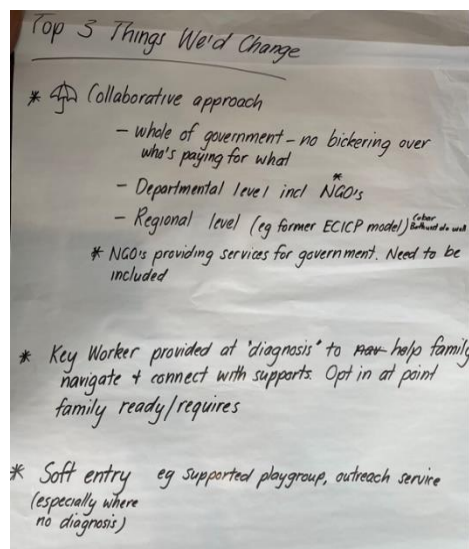 Top 3 Things We'd Change
* Collaborative approach
- whole of government - no bickering over
who's paying for what
- Departmental level incl NGO's *
- Regional level (eg former ECICP model) Cobar
Bathurst do well
* NGO's providing services for government. Need to be
included
* Key Worker provided at 'diagnosis' to nav help family
navigate + connect with supports. Opt in at point
family ready/requires
* Soft entry eg supported playgroup, outreach service
(especially where
no diagnosis)